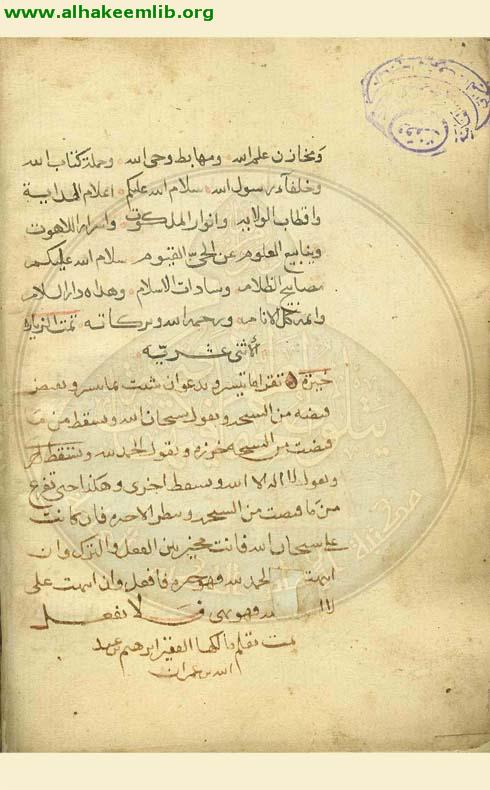 www.alhakeemlib.org
ومخازن علم الله ومهابط وحي الله وحملة كتاب الله
وخلفآء رسول الله سلام الله عليكم اعلام الهداية
واقطاب الولاية وانوار الملكوت واسرار اللاهوت
وينابيع العلوم عن الحي القيوم سلام الله عليكم
مصابيح الظلام وسادات الاسلام وهداة دار السلام
وائمة كل الانام ورحمة الله وبركاته تمت الزيارة
الأثنى عشرية
خيرة تقرا ما تيسر وتدعوا ان شئت بما تيسر وتقبض
قبضه من السبحه وتقول سبحان الله وتسقط من ما
قبضت من السبحه خرزه وتقول الحمد لله وتسقط اخر
وتقول لا اله الا الله وتسقط اخرى وهكذا حتى تفرغ
من ما قبضت من السبحه وينظر الاخيره فان كانت
على سبحان الله فانت مخير بين الفعل والترك وان
اسمت الحمد لله فهو خيره فافعل وان اسمت على
لا اله فهو نهي فلا تفعل
تمت بقلم مالكها الفقير ابرهيم بن عبد
الله بن عمران